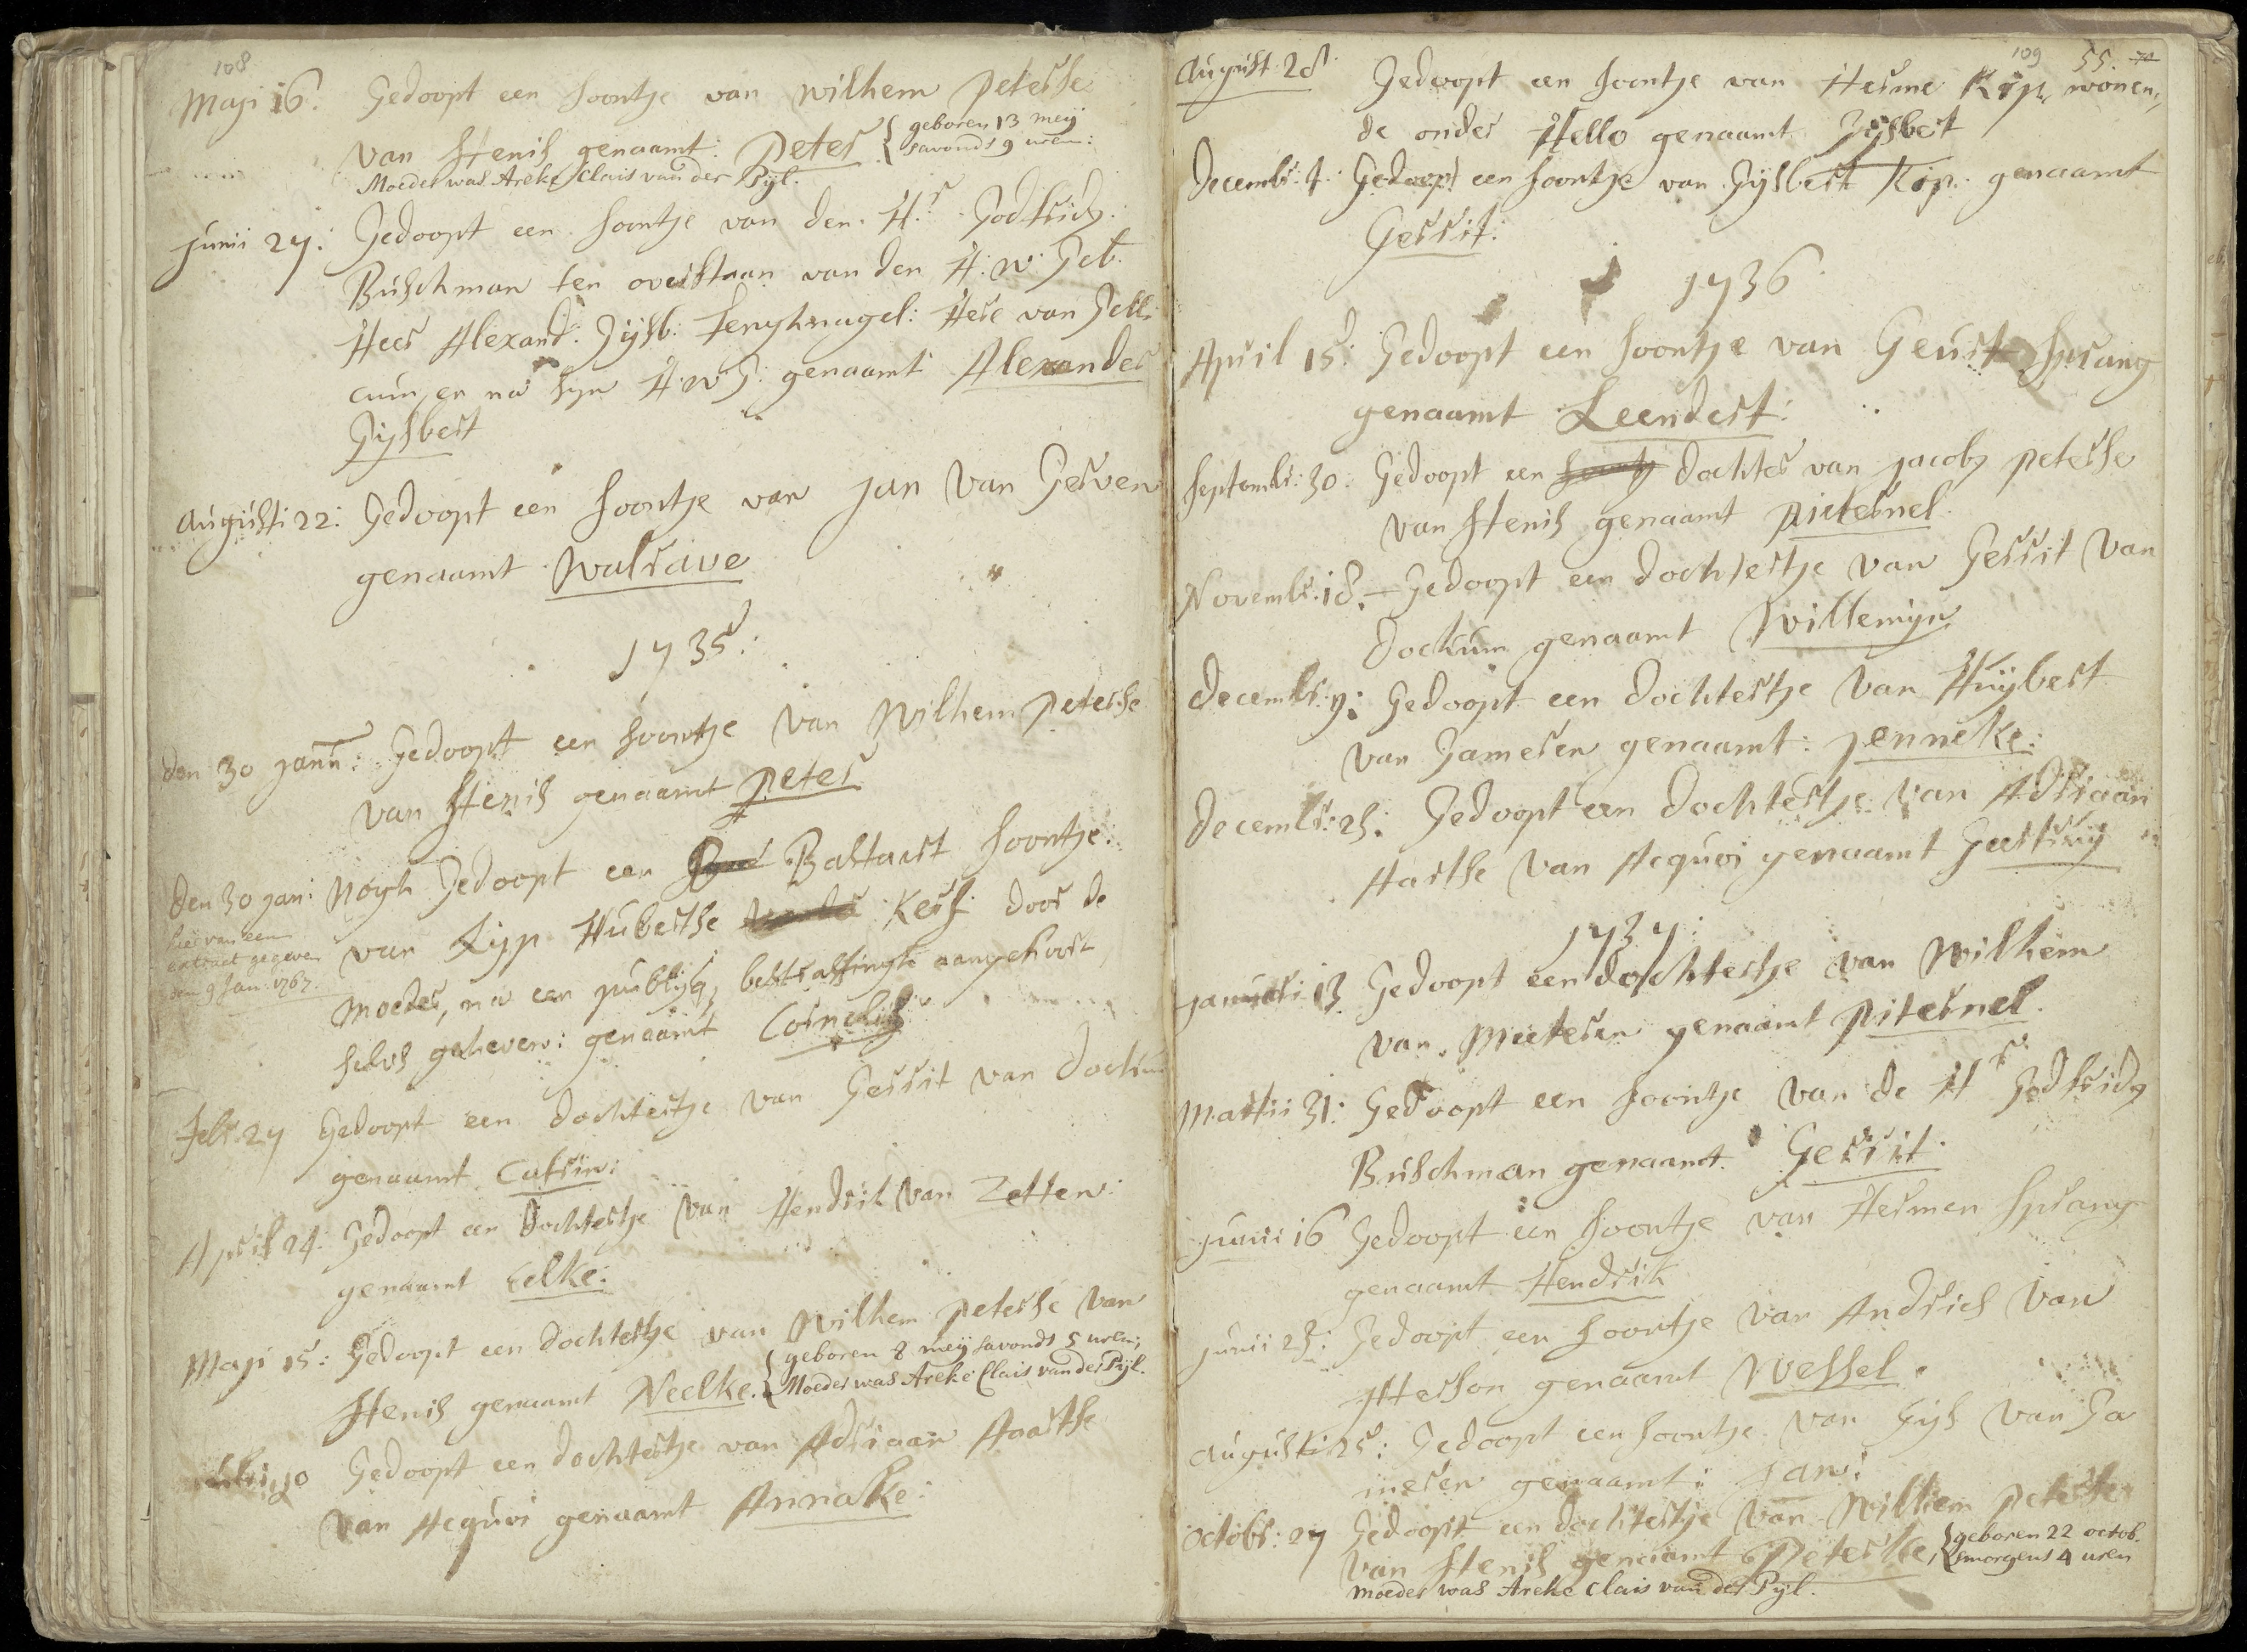 108
Maji 16. Gedoopt een soontje van Wilhem Peterse
van Henis genaamt: Peter {geboren 13 meij
savonds 9 uren:
Moeder was Areke Clais van der Pijl.
Junii 27: Gedoopt een soontje van den Hr. Godfrids
Buschman ten overstaan van den H: W: Geb.
Heer Alexand: Gijsb: Tengnagel: Here van Gell:
cum, en na sijn H: W: G: genaamt Alexander
Gijsbert
Augusti 22: Gedoopt een soontje van Jan van Gerven
genaamt Walrave
1735:
den 30 Jann: Gedoopt een soontje van Wilhem Peterse
van Henis genaamt Peter
den 30 Jan: Nogh Gedoopt een Bastart soontje:
van Lijp Hubertse Kers: door de
hier van een
extract gegeven
den 9 Jan. 1767.
Moeder, na een publijq bestraffingh aangehoort,
selvs geheven: genaamt Cornelis
Febr. 27 Gedoopt een dochtertje van Gerrit van dockum
genaamt Catrin:
April 24: Gedoopt een dochtertje van Hendrik van Zetten:
genaamt Eelke:
Maji 15: Gedoopt een dochtertje van Wilhem Peterse van
Henis genaamt Neelke. {geboren 8 meij savonds 5 uren;
Moeder was Areke Clais van der Pijl.
Gedoopt een dochtertje van Adriaan Aartse
van Acquoi genaamt Annake:
109 55.
August 28. Gedoopt een soontje van Herme Kop, wonen,,
de onder Hello genaamt Gijsbert
Decembr. 4: Gedoopt een soontje van Gijsbert Kop. genaamt
Gerrit:
1736
April 15: Gedoopt een soontje van Geurt Sprang
genaamt Leendert:
Septembr: 30: Gedoopt een dochter van Jacob Peterse
van Henis genaamt Pieternel.
Novembr. 18. Gedoopt een dochtertje van Gerrit van
dockum genaamt Willemijn
Decembr. 9: Gedoopt een dochtertje van Huijbert
van Gameren genaamt: Jenneke:
Decembr: 25: Gedoopt een dochtertje van Adriaan
Aartse van Acquoi genaamt Geertruij
1737:
Januari 13 Gedoopt een dochtertje van Wilhem
van Meeteren genaamt Piternel.
Martii 31: Gedoopt een soontje van de Hr Godfrids
Buschman genaamt Gerrit.
Junii 16 Gedoopt een soontje van Hermen Sprang
genaamt Hendrik
Junii 23: Gedoopt een soontje van Andries van
Herson genaamt Wessel.
Augusti 25: Gedoopt een soontje van Gijs van Ga
meren genaamt: Jan:
Octobr: 27 Gedoopt een dochtertje van Wilhem Peterse
van Henis genaamt Peterke, {geboren 22 octob.
smorgens 4 uren
Moeder was Areke Clais van der Pijl.